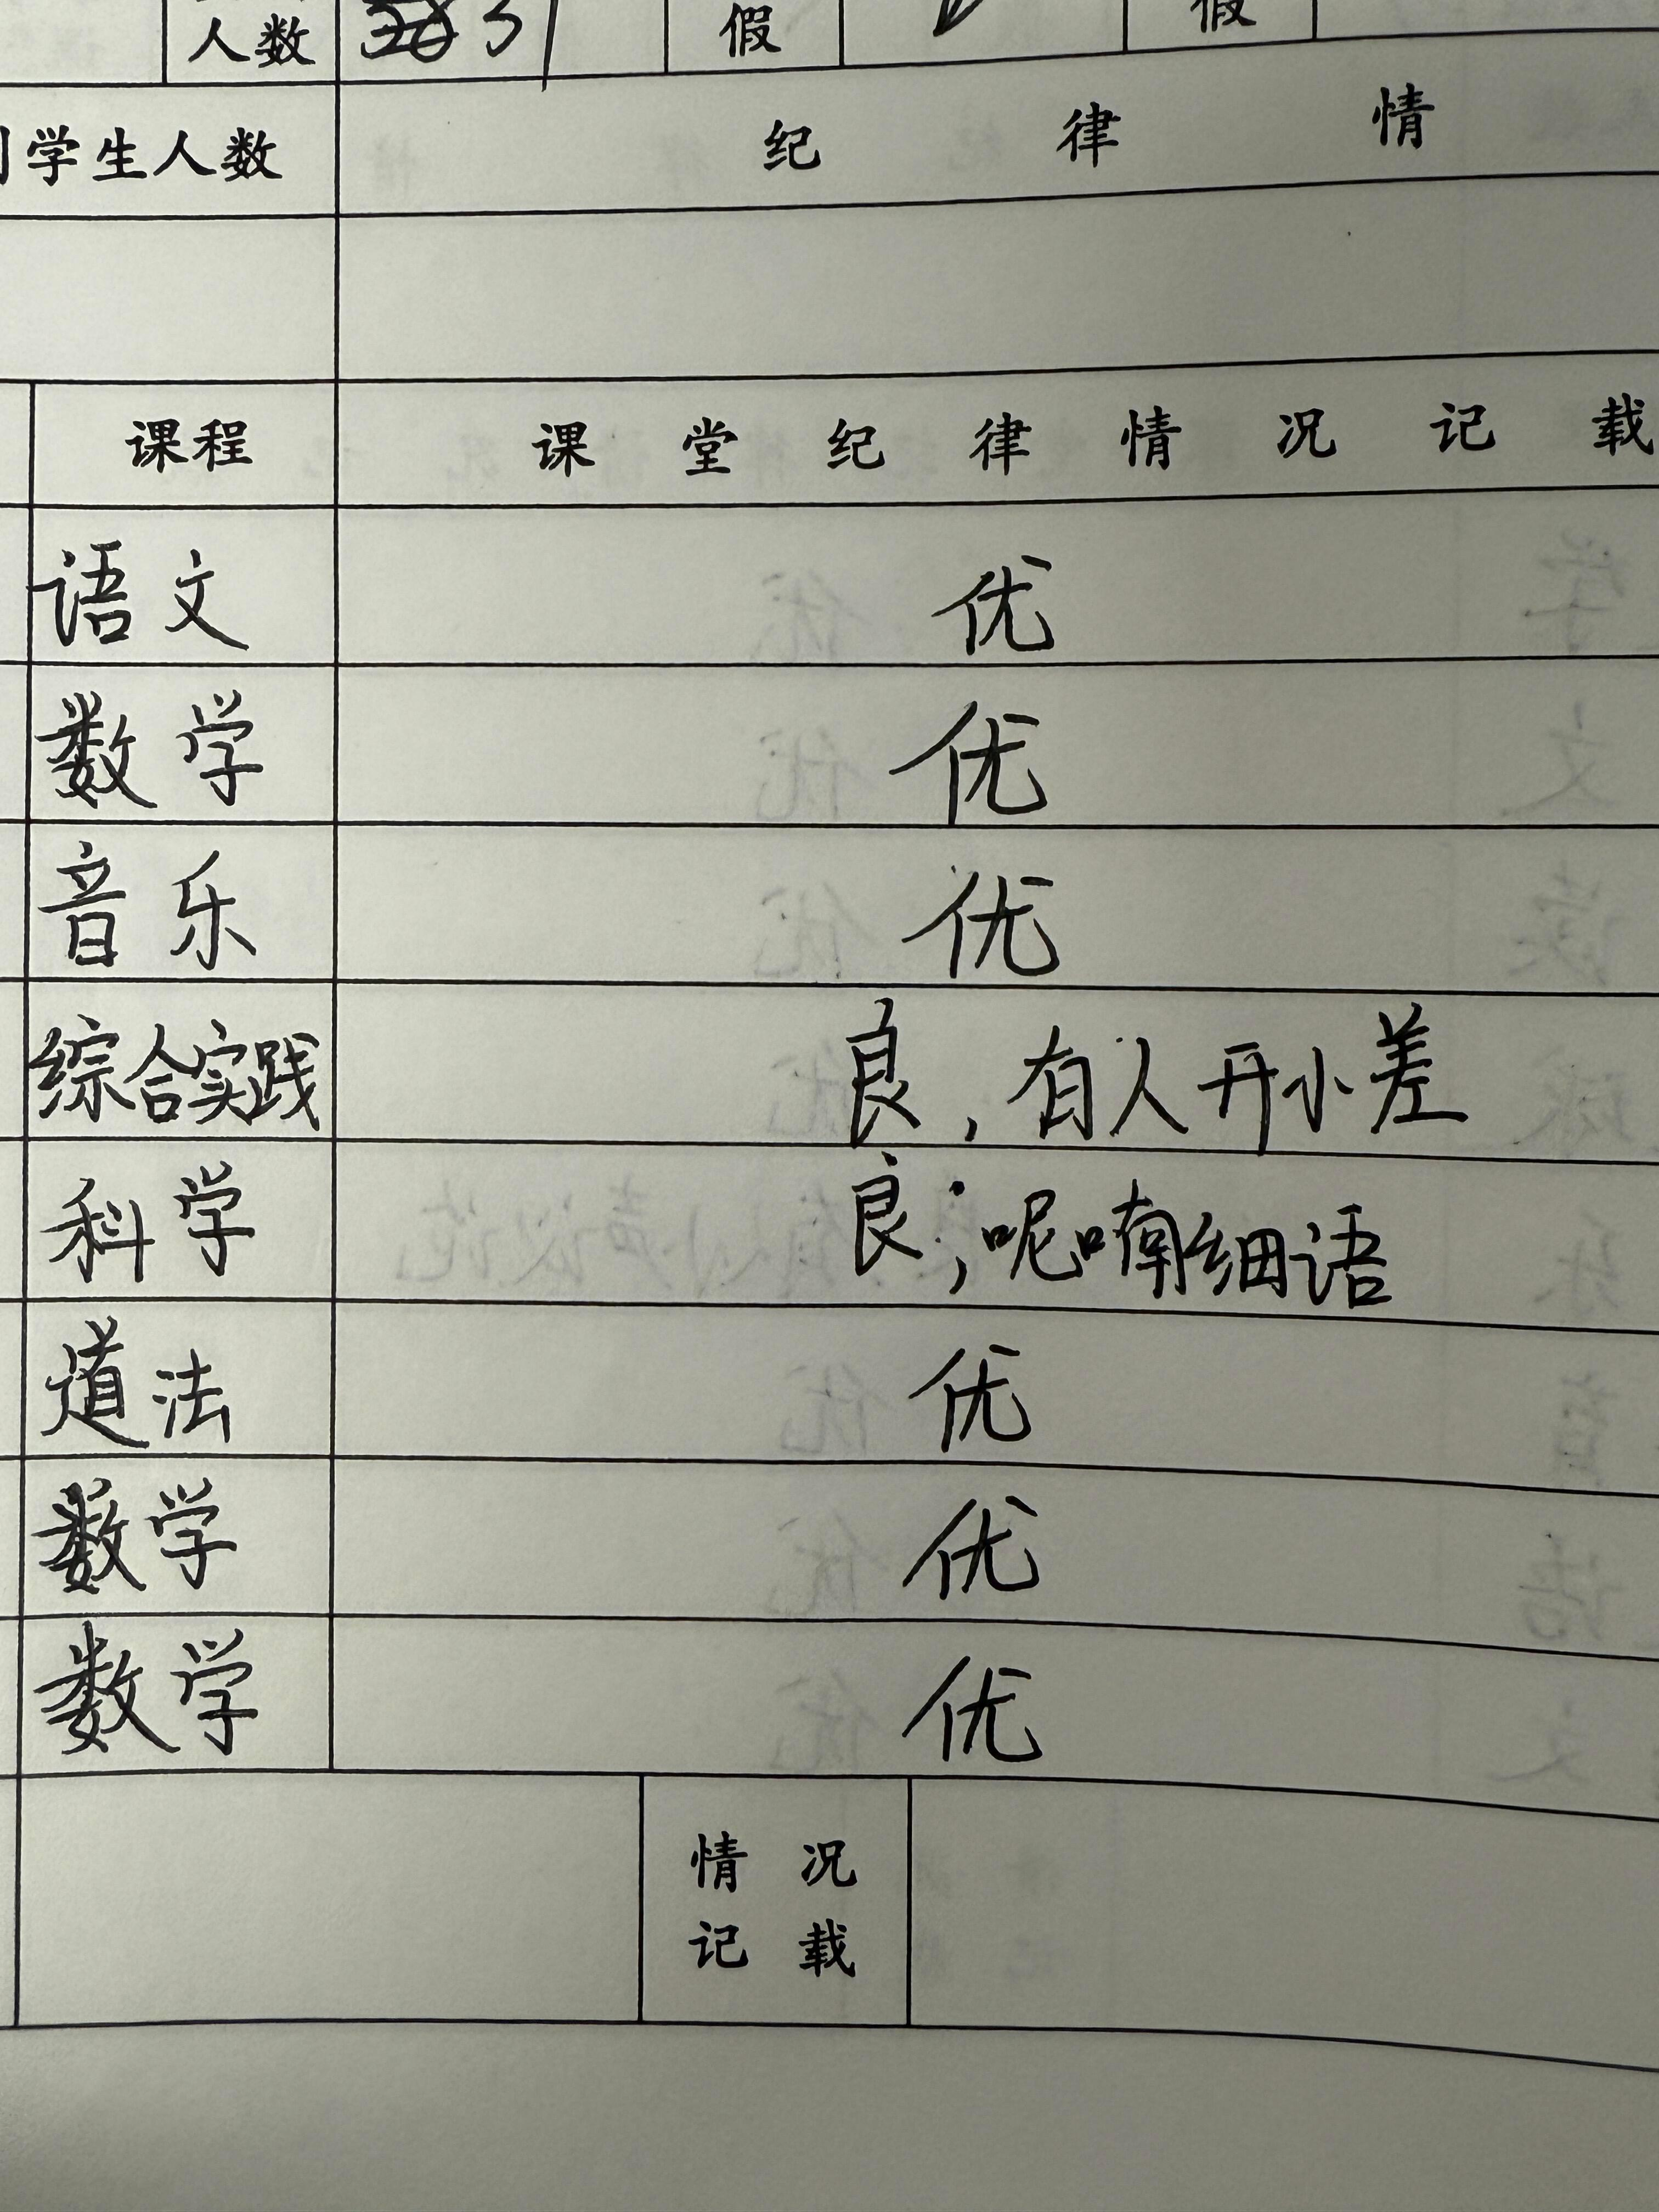 人数 31 假 假
学生人数 纪律情
课程 课堂纪律情况记载
语文 优
数学 优
音乐 优
综合实践 良，有人开小差
科学 良；呢喃细语
道法 优
数学 优
数学 优
情况
记载